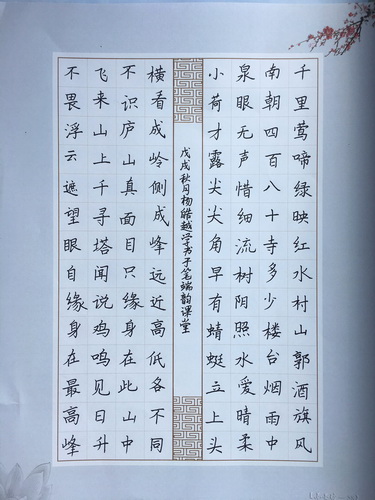 千里莺啼绿映红水村山郭酒旗风
南朝四百八十寺多少楼台烟雨中
泉眼无声惜细流树阴照水爱晴柔
小荷才露尖尖角早有蜻蜓立上头
戊戌秋月杨皓越学书于笔端韵课堂
横看成岭侧成峰远近高低各不同
不识庐山真面目只缘身在此山中
飞来山上千寻塔闻说鸡鸣见日升
不畏浮云遮望眼自缘身在最高峰